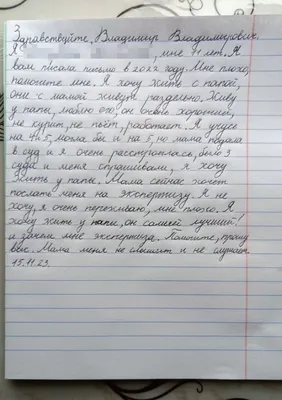 Здравствуйте, Владимир Владимирович.
Я, мне 11 лет. Я
вам писала письмо в 2022 году. Мне плохо,
помогите мне. Я хочу жить с папой,
они с мамой живут раздельно. Живу
у папы, люблю его, он очень хороший,
не курит, не пьёт, работает. Я учусь
на 4 и 5, могла бы и на 5, но мама подала
в суд и я очень расстроилась, было 3
суда и меня спрашивали, я хочу
жить у папы. Мама сейчас хочет
послать меня на экспертизу. Я не
хочу, я очень переживаю, мне плохо. Я
хочу жить у папы, он самый лучший!
и зачем мне экспертиза. Помогите, прошу
вас. Мама меня не слышит и не слушает.
15.11.23.